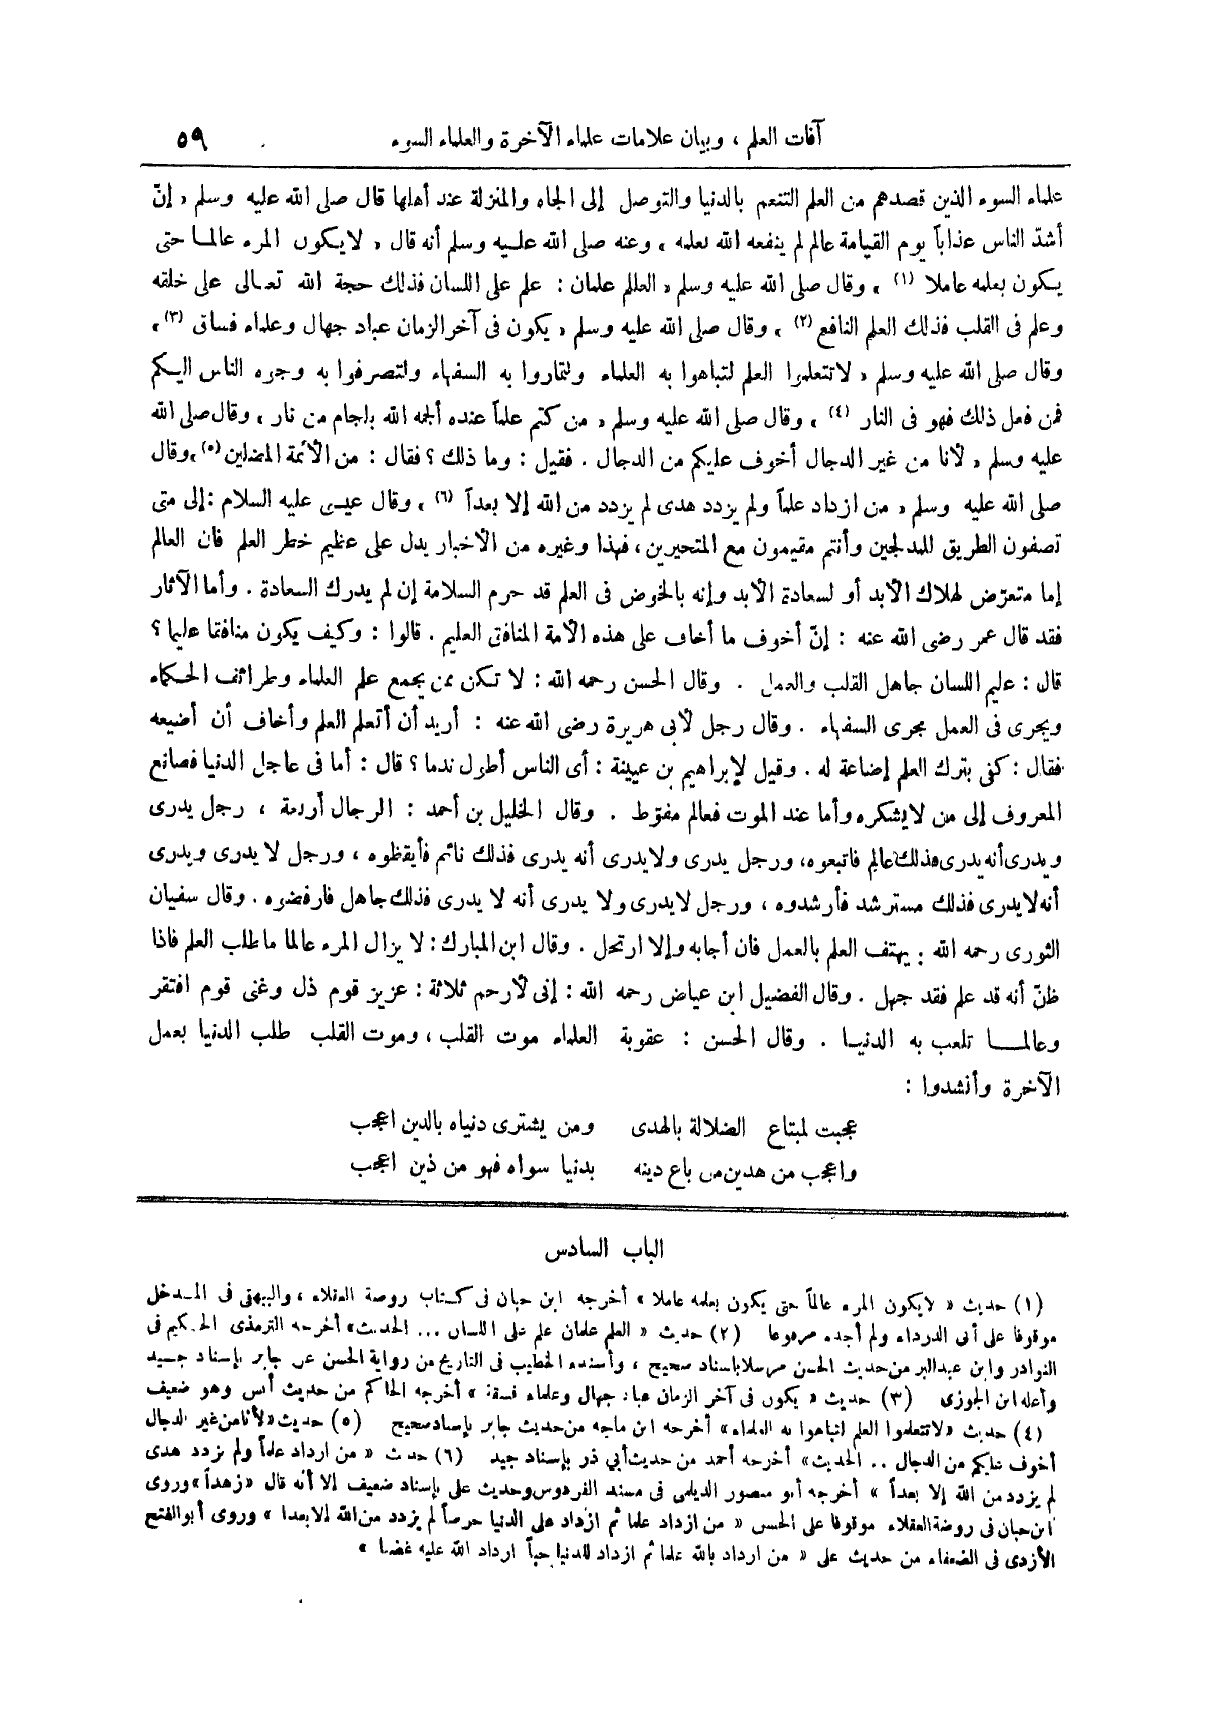 آفات العلم ، وبيان علامات علماء الآخرة والعلماء السوء ٥٩
علماء السوء الذين قصدهم من العلم التنعم بالدنيا والتوصل إلى الجاه والمنزلة عند أهلها قال صلى الله عليه وسلم « إنّ
أشدّ الناس عذاباً يوم القيامة عالم لم ينفعه الله بعلمه » وعنه صلى الله عليه وسلم أنه قال « لا يكون المرء عالما حتى
يكون بعلمه عاملا (١) » وقال صلى الله عليه وسلم « العلم علمان : علم على اللسان فذلك حجة الله تعالى على خلقه
وعلم فى القلب فذلك العلم النافع (٢) » وقال صلى الله عليه وسلم « يكون فى آخر الزمان عباد جهال وعلماء فساق (٣) »
وقال صلى الله عليه وسلم « لا تتعلموا العلم لتباهوا به العلماء ولتماروا به السفهاء ولتصرفوا به وجوه الناس اليكم
فمن فعل ذلك فهو فى النار (٤) » وقال صلى الله عليه وسلم « من كتم علماً عنده ألجمه الله بلجام من نار » وقال صلى الله
عليه وسلم « لأنا من غير الدجال أخوف عليكم من الدجال . فقيل : وما ذلك ؟ فقال : من الأئمة المضلين (٥) » وقال
صلى الله عليه وسلم « من ازداد علماً ولم يزدد هدى لم يزدد من الله إلا بعداً (٦) » وقال عيسى عليه السلام : إلى متى
تصفون الطريق للمدلجين وأنتم مقيمون مع المتحيرين ، فهذا وغيره من الأخبار يدل على عظيم خطر العلم فان العالم
إما متعرّض لهلاك الأبد أو لسعادة الأبد وإنه بالخوض فى العلم قد حرم السلامة إن لم يدرك السعادة . وأما الآثار
فقد قال عمر رضى الله عنه : إنّ أخوف ما أخاف على هذه الأمة المنافق العليم . قالوا : وكيف يكون منافقا عليما ؟
قال : عليم اللسان جاهل القلب والعمل . وقال الحسن رحمه الله : لا تكن ممن يجمع علم العلماء وطرائف الحكماء
ويجرى فى العمل مجرى السفهاء . وقال رجل لأبى هريرة رضى الله عنه : أريد أن أتعلم العلم وأخاف أن أضيعه
فقال : كفى بترك العلم إضاعة له . وقيل لإبراهيم بن عيينة : أى الناس أطول ندما ؟ قال : أما فى عاجل الدنيا فصانع
المعروف إلى من لا يشكره وأما عند الموت فعالم مفرّط . وقال الخليل بن أحمد : الرجال أربعة ، رجل يدرى
ويدرى أنه يدرى فذلك عالم فاتبعوه ، ورجل يدرى ولا يدرى أنه يدرى فذلك نائم فأيقظوه ، ورجل لا يدرى ويدرى
أنه لا يدرى فذلك مسترشد فأرشدوه ، ورجل لا يدرى ولا يدرى أنه لا يدرى فذلك جاهل فارفضوه . وقال سفيان
الثورى رحمه الله : يهتف العلم بالعمل فان أجابه وإلا ارتحل . وقال ابن المبارك : لا يزال المرء عالما ما طلب العلم فاذا
ظنّ أنه قد علم فقد جهل . وقال الفضيل ابن عياض رحمه الله : إنى لأرحم ثلاثة : عزيز قوم ذل وغنى قوم افتقر
وعالمــا تلعب به الدنيــا . وقال الحسن : عقوبة العلماء موت القلب ، وموت القلب طلب الدنيا بعمل
الآخرة وأنشدوا :
عجبت لمبتاع الضلالة بالهدى ومن يشترى دنياه بالدين اعجب
واعجب من هذين من باع دينه بدنيا سواه فهو من ذين اعجب
الباب السادس
(١) حديث « لا يكون المرء عالماً حتى يكون بعلمه عاملا » أخرجه ابن حبان فى كتاب روضة العقلاء ، والبيهقى فى المدخل
موقوفا على أبى الدرداء ولم أجده مرفوعا (٢) حديث « العلم علمان علم على اللسان ... الحديث» أخرجه الترمذى الحكيم فى
النوادر وابن عبدالبر من حديث الحسن مرسلا باسناد صحيح ، وأسنده الخطيب فى التاريخ من رواية الحسن عن جابر بإسناد جيد
وأعله ابن الجوزى (٣) حديث « يكون فى آخر الزمان عباد جهال وعلماء فسقة » أخرجه الحاكم من حديث أنس وهو ضعيف
(٤) حديث «لا تتعلموا العلم لتباهوا به العلماء» أخرجه ابن ماجه من حديث جابر بإسناد صحيح (٥) حديث «لأنا من غير الدجال
أخوف عليكم من الدجال .. الحديث» أخرجه أحمد من حديث أبي ذر بإسناد جيد (٦) حديث « من ازداد علماً ولم يزدد هدى
لم يزدد من الله إلا بعداً » أخرجه أبو منصور الديلمى فى مسند الفردوس وحديث على بإسناد ضعيف إلا أنه قال «زهداً» وروى
ابن حبان فى روضة العقلاء موقوفا على الحسن « من ازداد علما ثم ازداد على الدنيا حرصاً لم يزدد من الله إلا بعدا » وروى أبو الفتح
الأزدى فى الضعفاء من حديث على « من ازداد بالله علما ثم ازداد للدنيا حباً ازداد الله عليه غضبا »